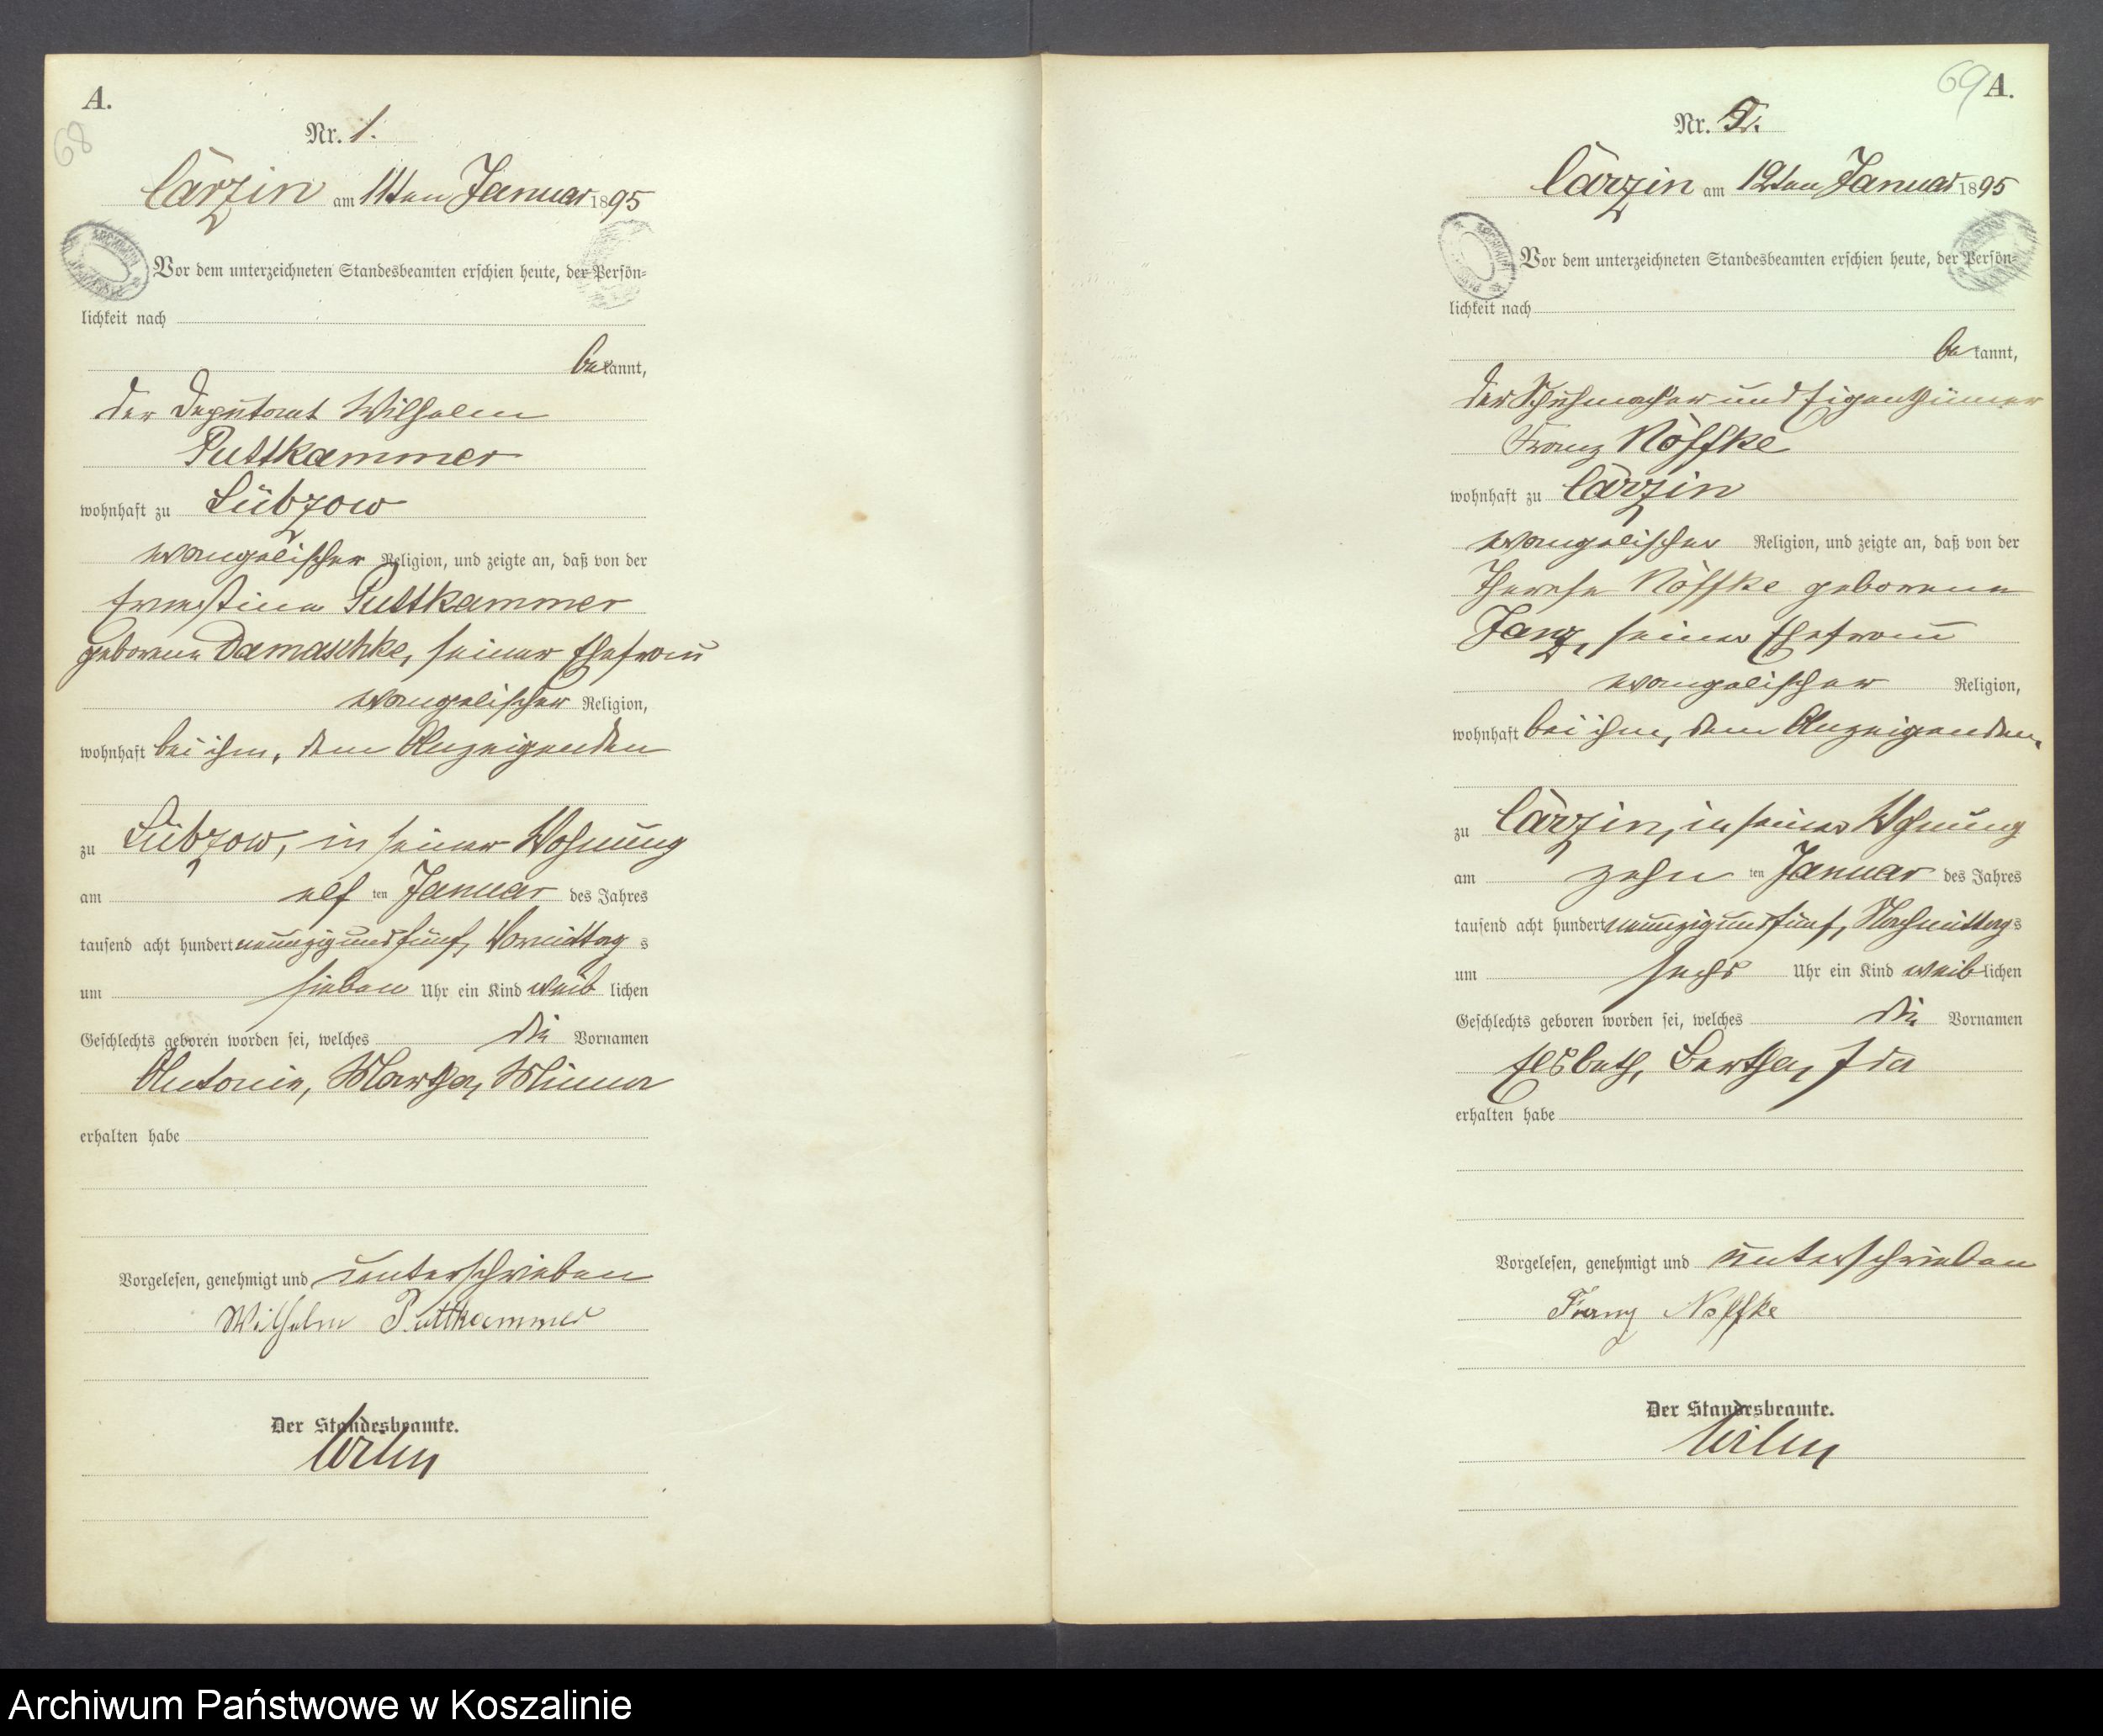 A.
68
Nr. 1.
Carzin am 11ten Januar 1895
Vor dem unterzeichneten Standesbeamten erschien heute, der Persön-
lichkeit nach
be kannt,
der Deputant Wilhelm
Puttkammer
wohnhaft zu Lübzow
evangelischer Religion, und zeigte an, daß von der
Ernestine Puttkammer
geborene Damaschke, seiner Ehefrau
evangelischer Religion,
wohnhaft bei ihm, dem Anzeigenden
zu Lübzow, in seiner Wohnung
am elf ten Januar des Jahres
tausend acht hundert neunzig und fünf, Vormittag s
um sieben Uhr ein Kind weib lichen
Geschlechts geboren worden sei, welches die Vornamen
Antonie, Martha, Minna
erhalten habe
Vorgelesen, genehmigt und unterschrieben
Wilhelm Puttkammer
Der Standesbeamte.
69 A.
Nr. 2.
Carzin am 12ten Januar 1895
Vor dem unterzeichneten Standesbeamten erschien heute, der Persön-
lichkeit nach
be kannt,
der Schuhmacher und Eigenthümer
Franz Nöffke
wohnhaft zu Carzin
evangelischer Religion, und zeigte an, daß von der
Therese Nöffke geborene
Janz, seiner Ehefrau
evangelischer Religion,
wohnhaft bei ihm, dem Anzeigenden,
zu Carzin, in seiner Wohnung
am zehn ten Januar des Jahres
tausend acht hundert neunzig und fünf, Nachmittag s
um sechs Uhr ein Kind weib lichen
Geschlechts geboren worden sei, welches die Vornamen
Elsbeth, Bertha, Ida
erhalten habe
Vorgelesen, genehmigt und unterschrieben
Franz Nöffke
Der Standesbeamte.
Archiwum Państwowe w Koszalinie